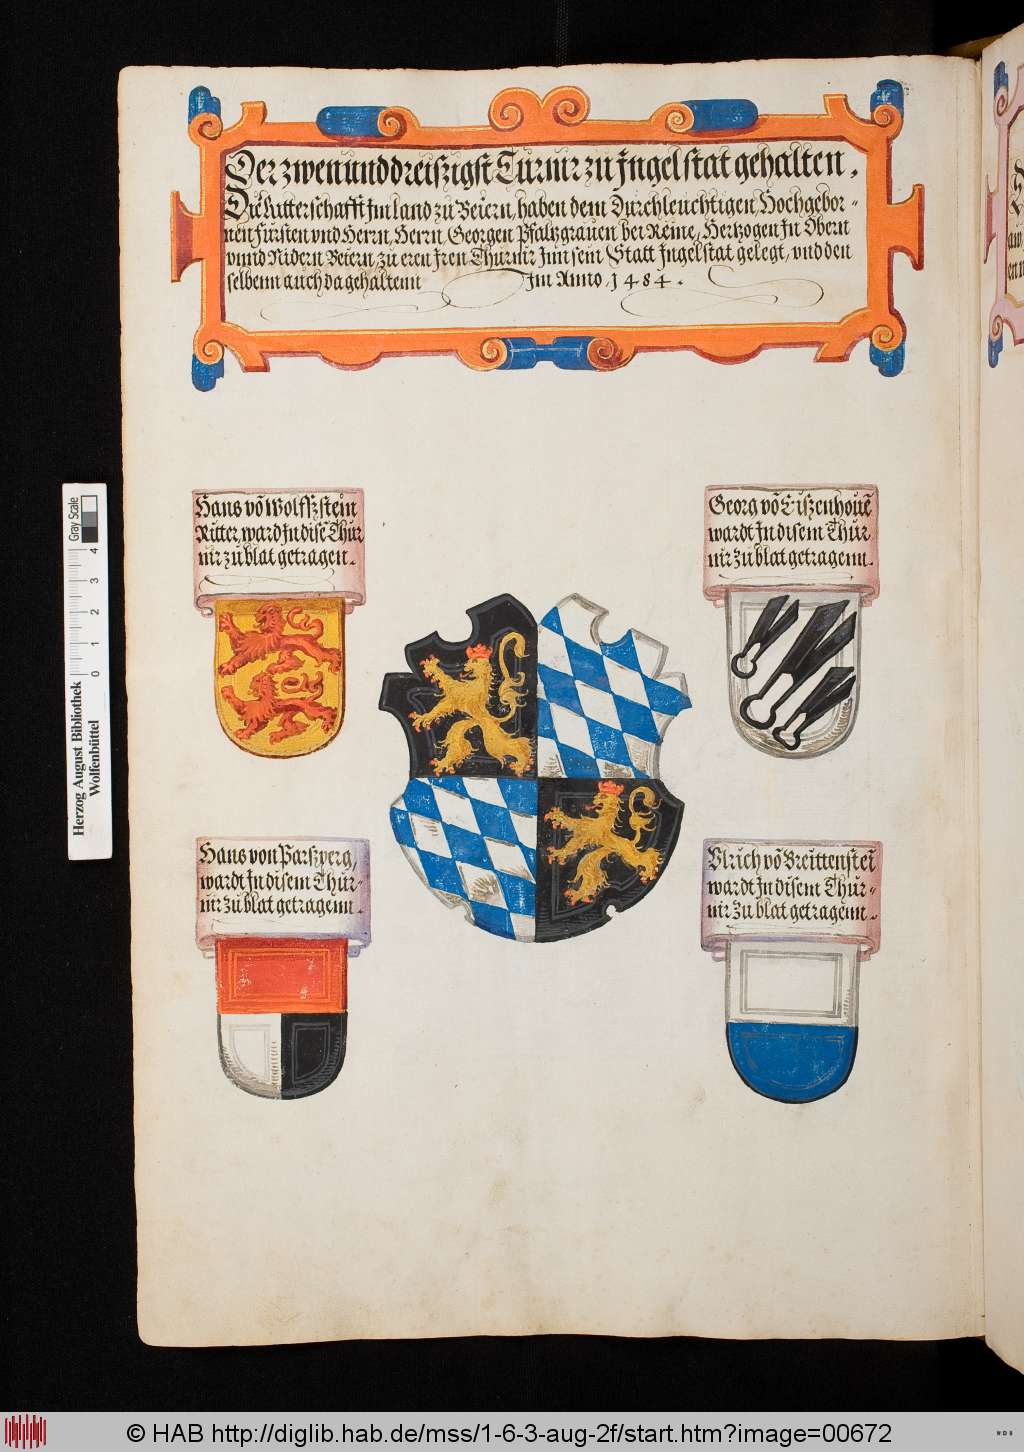 Der zwen unnd dreissigst Turnir zu Ingelstat gehalten.
Die Ritterschafft Im land zu Beiern, haben dem Durchleuchtigen Hochgebor-
nen fürsten vnd Herrn, Herrn Georgen Pfaltzgrauen bei Reine, Hertzogen In Obern
vnnd Nidern Beiern, zu eren Iren Thurnir Inn sein Statt Ingelstat gelegt, vnd den
selbenn auch da gehaltenn Im Anno 1484.
Hans vō Wolffsstein
Ritter, ward In dise Thur
nir zu blat getragen.
Georg vō Eissenhouē
wardt In disem Thur
nir zu blat getragenn.
Hans von Parszperg,
wardt In disem Thur-
nir zu blat getragenn.
Vlrich vō Breittensteī
wardt In disem Thur-
nir zu blat getragenn.
Gray Scale
0 1 2 3 4
Herzog August Bibliothek
Wolfenbüttel
© HAB http://diglib.hab.de/mss/1-6-3-aug-2f/start.htm?image=00672